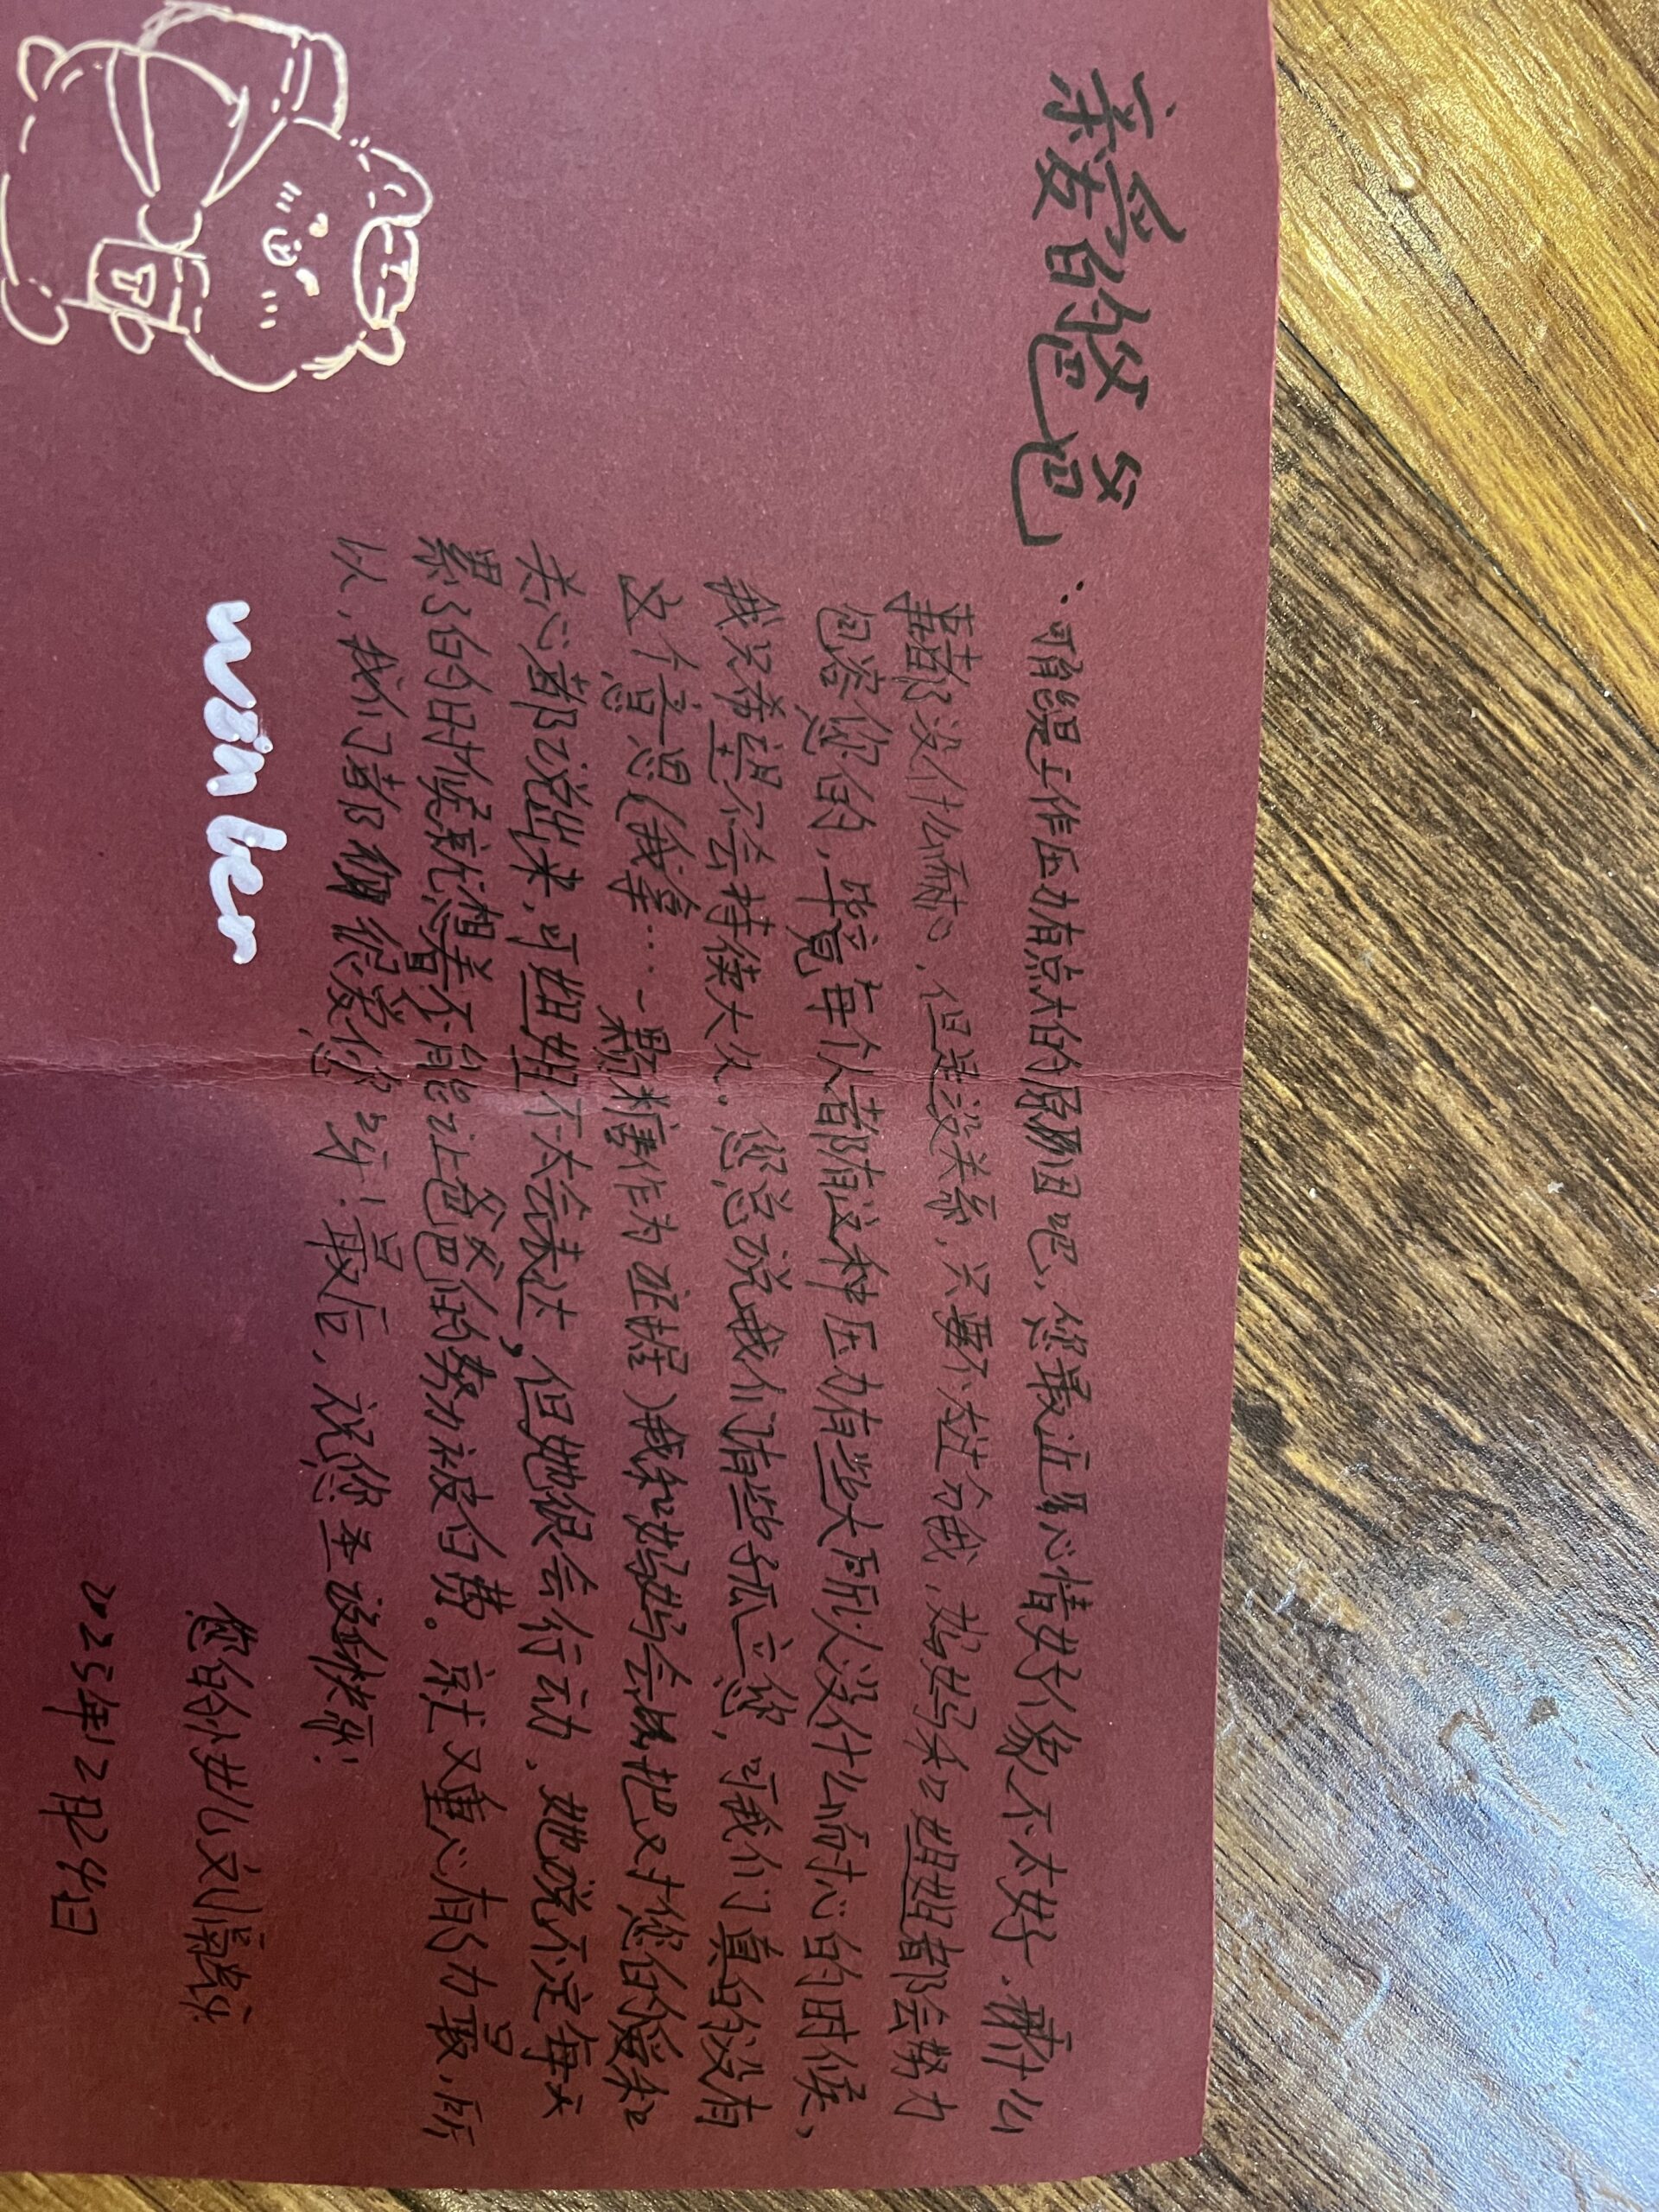 亲爱的爸爸：
可能是工作压力有点大的原因吧，您最近心情好像不太好，干什么
事都没什么耐心，但是没关系，只要不太过分我、妈妈和姐姐都会努力
包容您的，毕竟每个人都有这种压力有些大所以没什么耐心的时候，
我只希望不会持续太久。您总说我们有些孤立您，可我们真的没有
这个意思（我拿…一颗糖作为证据）我和妈妈会把对您的爱和
关心都说出来，可姐姐不太会表达，但她很会行动，她说不定每天
累了的时候就想着不能让爸爸的努力被白费。就又重心有的力最，所
以，我们都很爱您哟！最后，祝您圣诞快乐！
winter
您的小女儿
2025年12月24日